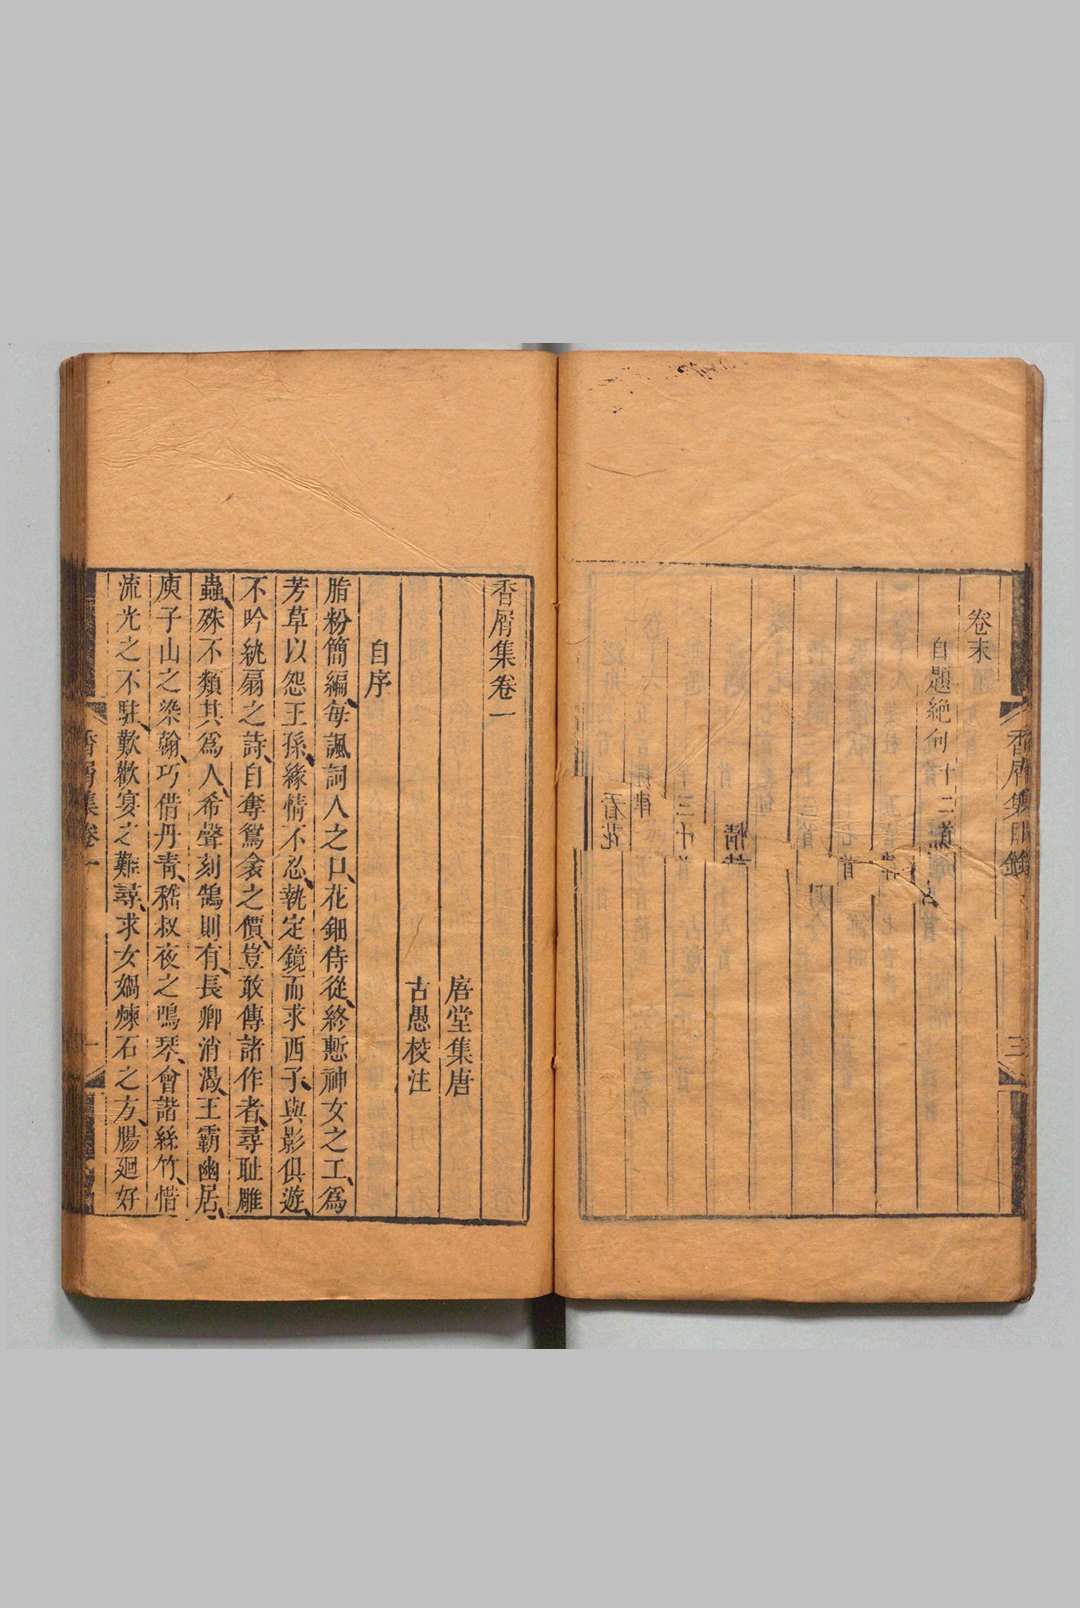 卷末
自題絶句十二首
香屑集目錄
三
香屑集卷一
唐堂集唐
古愚校注
自序
脂粉簡編每諷詞人之口花鈿侍從終慙神女之工爲
芳草以怨王孫緣情不忍執定鏡而求西子與影俱遊
不吟紈扇之詩自奪鴛衾之價豈敢傳諸作者尋耻雕
蟲殊不類其爲人希聲刻鵠則有長卿消渴王霸幽居
庾子山之染翰巧借丹青嵇叔夜之鳴琴會諧絲竹惜
流光之不駐歎歡宴之難尋求女媧煉石之方腸廻好
香屑集卷一
一